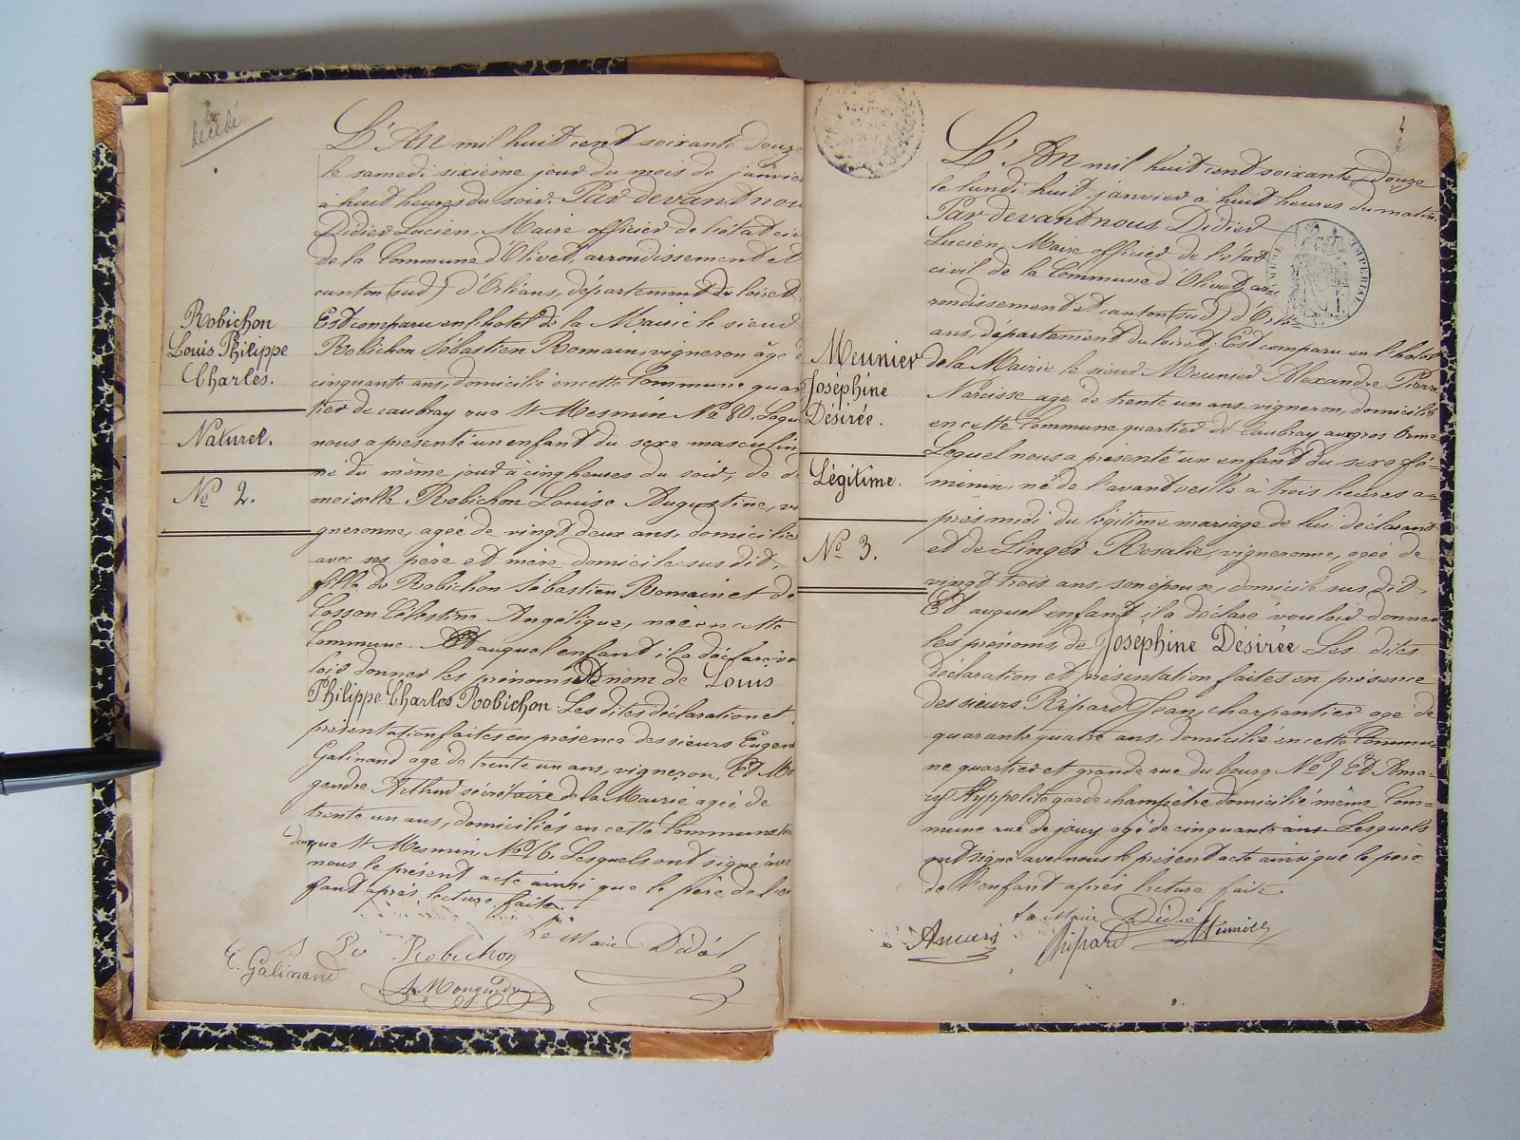 décédé
Robichon
Louis Philippe
Charles.
Naturel.
No 2.
L'An mil huit cent soixante douze
le samedi sixième jour du mois de janvier
à huit heures du soir. Par devant nous
Didier Lucien, Maire officier de l'état civ
de la Commune d'Olivet, arrondissement et
canton (sud) d'Orléans, département du Loiret.
Est comparu en l'hotel de la Mairie le sieur
Robichon Sébastien Romain, vigneron âgé d
cinquante ans, domicilié en cette Commune quar
tier de caubray rue St Mesmin No 80. Lequ
nous a présenté un enfant du sexe masculin
né du même jour à cinq heures du soir, de d
moiselle Robichon Louise Augustine, vi
gneronne, agée de vingt deux ans, domiciliée
avec ses père et mère, domicile sus dit,
fille de Robichon Sébastien Romain et de
Cosson Célestine Angélique, née en cette
Commune. Et auquel enfant il a déclaré vou
loir donner les prénoms et nom de Louis
Philippe Charles Robichon. Les dites déclaration et
présentation faites en présence des sieurs Eugène
Galinand agé de trente un ans, vigneron, Et Mon
gendre Arthur secrétaire de la Mairie agée de
trente un ans, domiciliés en cette Commune
rue St Mesmin, No 16. Lesquels ont signé avec
nous le présent acte ainsi que le père de l'en
fant après lecture faite.
Le Maire Didier
Robichon
E. Galinand
Meunier
Joséphine
Désirée.
Légitime.
No 3.
L'An mil huit cent soixante douze
le lundi huit janvier à huit heures du matin.
Par devant nous Didier
Lucien, Maire officier de l'état
civil de la Commune d'Olivet, arr
rondissement et canton (sud) d'Orlé
ans, département du Loiret, Est comparu en l'hotel
de la Mairie le sieur Meunier Alexandre Pierre
Narcisse age de trente un ans, vigneron, domicilié
en cette Commune quartier de Caubray au gros Orme
Lequel nous a présenté un enfant du sexe fé-
minin, né de l'avant veille à trois heures a-
près midi du légitime mariage de lui déclarant
et de Linger Rosalie, vigneronne, agée de
vingt trois ans, son épouse, domicile sus dit.
Et auquel enfant il a déclaré vouloir donner
les prénoms de Joséphine Désirée. Les dites
déclaration et présentation faites en présence
des sieurs Ripard Jean, charpentier age de
quarante quatre ans, domicilié en cette Commu
ne quartier et grande rue du bourg No 9 Et Ama-
ry Hyppolite garde champêtre domicilié même Com-
mune rue de jouy agé de cinquante ans Lesquels
ont signé avec nous le présent acte ainsi que le père
de l'enfant après lecture faite.
Le Maire Didier
Ripard Meunier